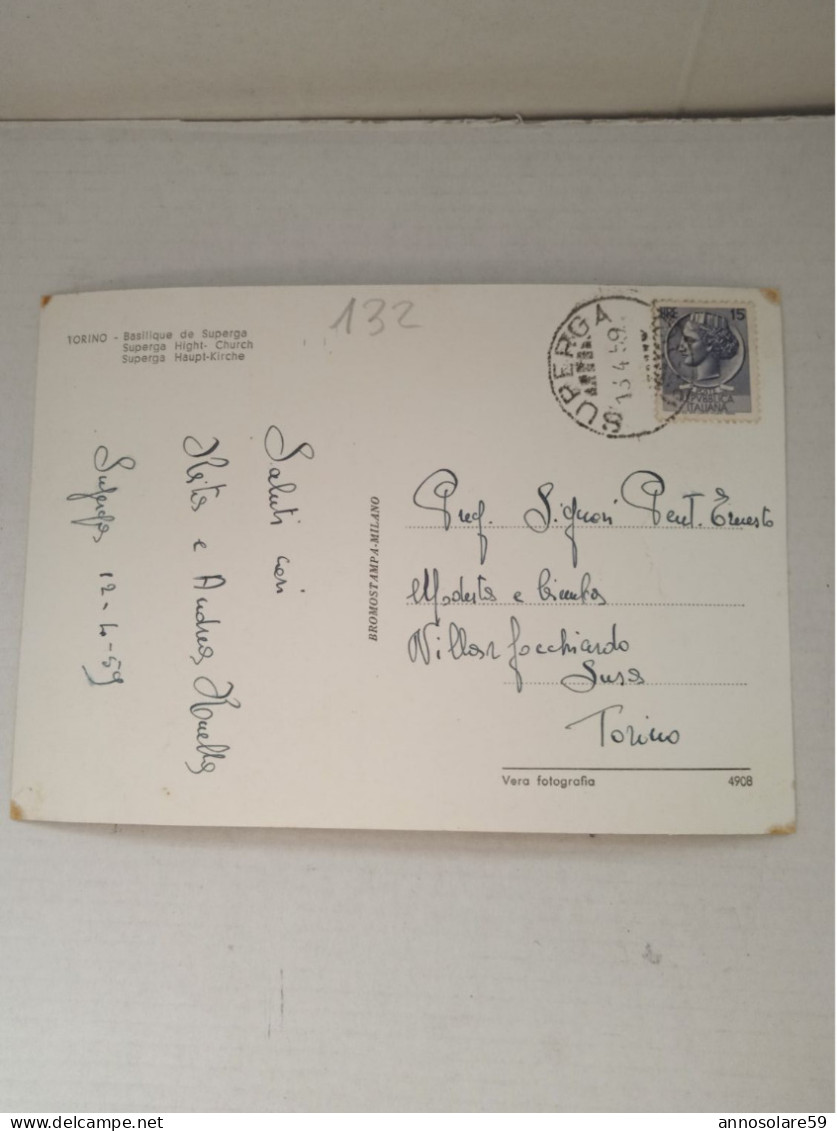 132
TORINO - Basilique de Superga
Superga Hight- Church
Superga Haupt-Kirche
Saluti cari
e Andrea
Superga 12-4-59
BROMOSTAMPA-MILANO
SUPERGA
13.4.59
LIRE 15
REPVBBLICA
ITALIANA
Preg. Signori Pent. Ernesto
Modesta e
Villar Focchiardo
Susa
Torino
Vera fotografia 4908
delcampe.net
annosolare59